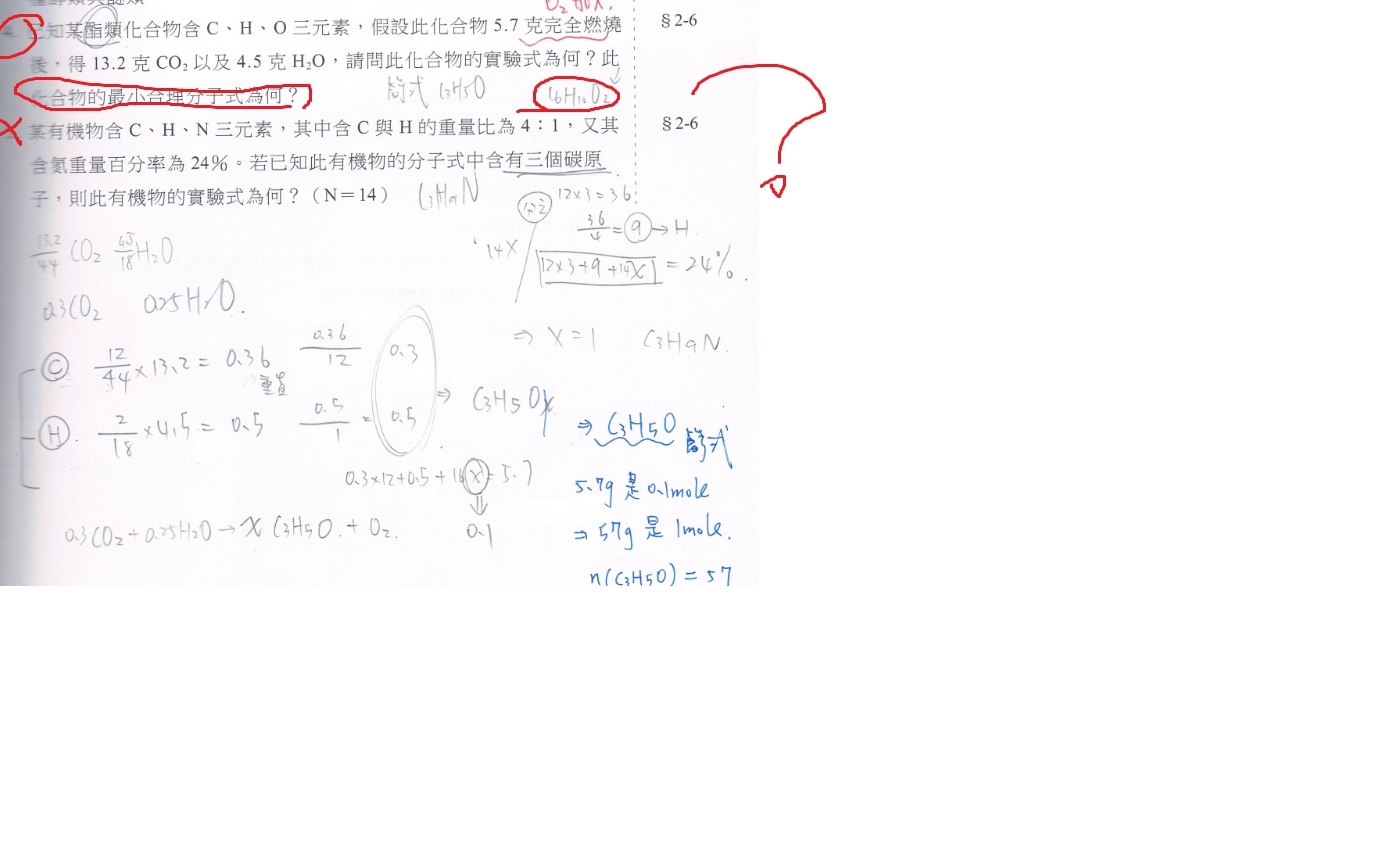 O₂ 加x.
已知某酯類化合物含 C、H、O 三元素，假設此化合物 5.7 克完全燃燒 §2-6
後，得 13.2 克 CO₂ 以及 4.5 克 H₂O，請問此化合物的實驗式為何？此
化合物的最小合理分子式為何？ 簡式 C₃H₅O C₆H₁₀O₂
某有機物含 C、H、N 三元素，其中含 C 與 H 的重量比為 4：1，又其 §2-6
含氮重量百分率為 24%。若已知此有機物的分子式中含有三個碳原
子，則此有機物的實驗式為何？（N＝14） C₃H₉N
分子 12×3=36
36/4 = 9 → H
13.2/44 CO₂ 4.5/18 H₂O
14X / 12×3+9+14X = 24%
0.3CO₂ 0.25H₂O.
⇒ X=1 C₃H₉N.
C 12/44 ×13.2 = 0.36 重量 0.36/12 0.3
⇒ C₃H₅Ox
H. 2/18 ×4.5 = 0.5 0.5/1 = 0.5
⇒ C₃H₅O 簡式
0.3×12+0.5+16x = 5.7
0.1
5.7g 是 0.1mole
0.3CO₂ + 0.25H₂O → X C₃H₅O + O₂.
⇒ 57g 是 1mole.
n(C₃H₅O) = 57